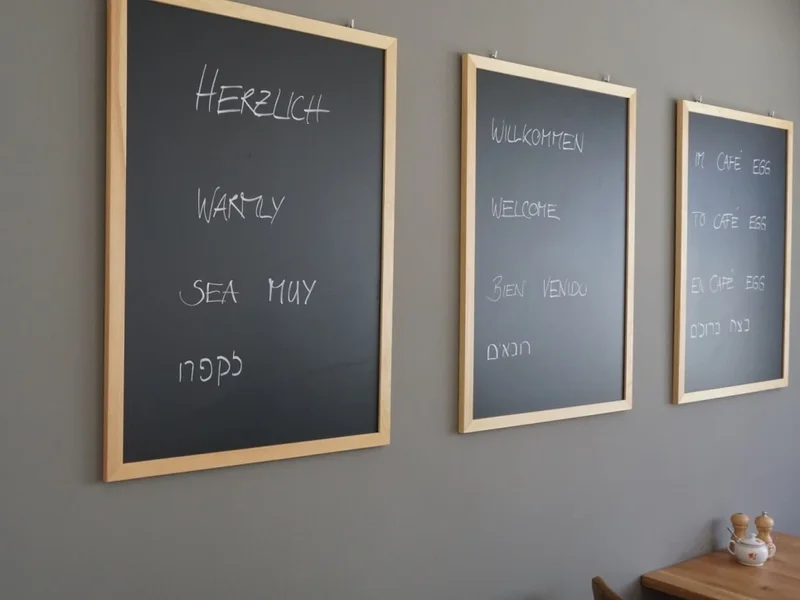 HERZLICH
WARMLY
SEA MUY
לקפה
WILLKOMMEN
WELCOME
BIEN VENIDO
הבאים
IM CAFÉ EGG
TO CAFÉ EGG
EN CAFÉ EGG
ביצה ברוכים